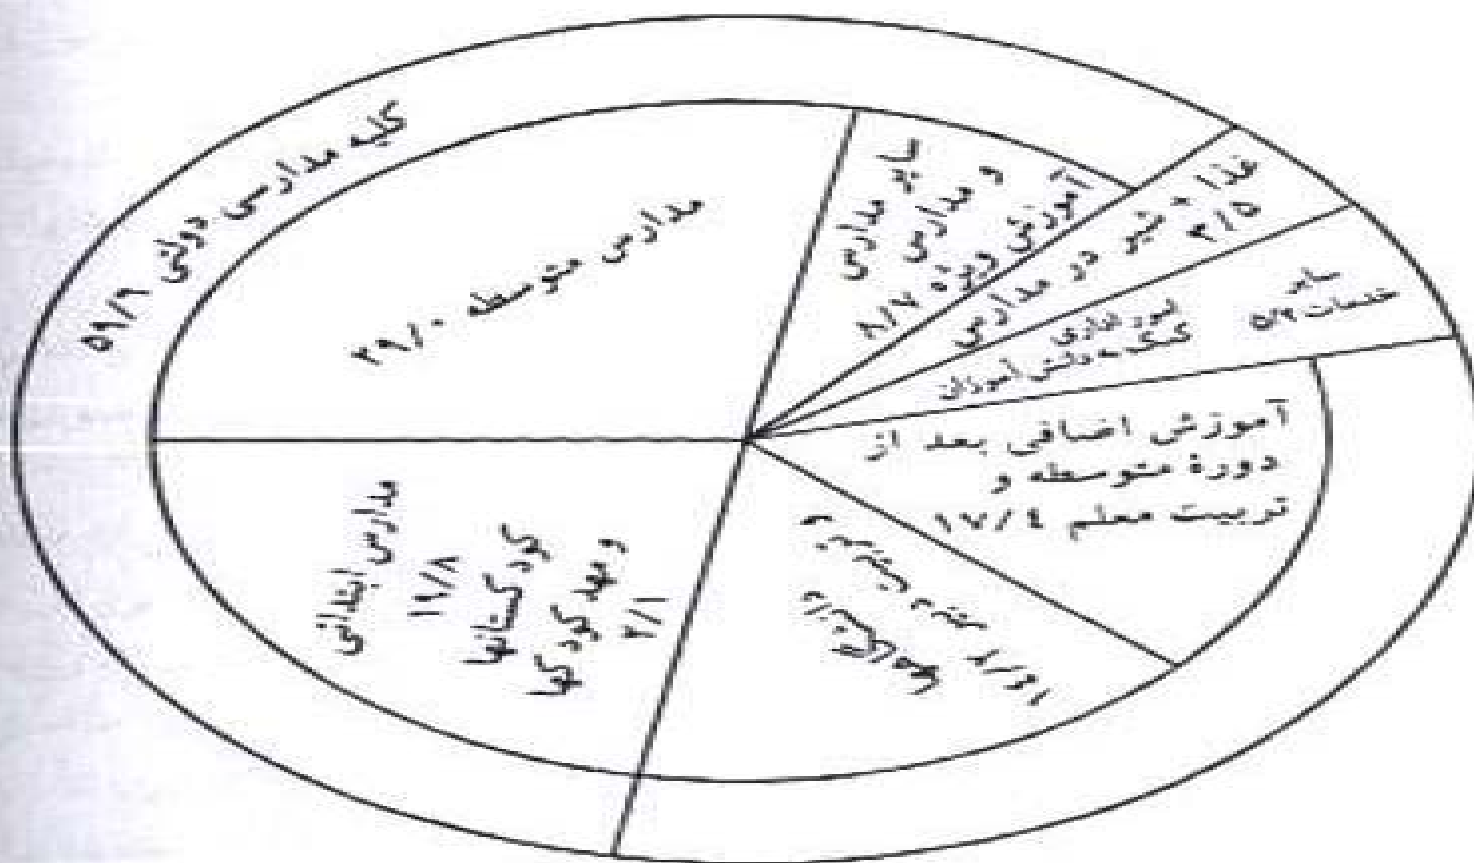 کلیه مدارس دولتی ۵۹/۹
مدارس متوسطه ۲۹/۰
سایر مدارس
و مدارس
آموزش ویژه ۸/۷
غذا و شیر در مدارس
۳/۵
سایر
خدمات
کمک به دانش آموزان
آموزش اضافی بعد از
دورهٔ متوسطه و
تربیت معلم ۱۷/۴
مدارس ابتدائی
۱۹/۸
کودکستانها
و مهد کودکها
۲/۱